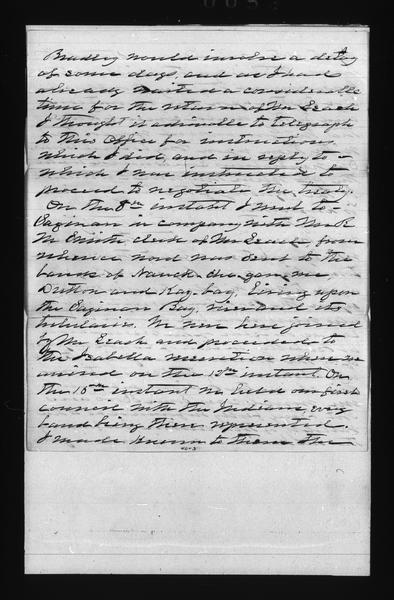 Bradley would involve a delay
of some days, and as I had
already waited a considerable
time for the return of Mr Leach
I thought it advisable to telegraph
to this Office for instructions
which I did, and in reply to
which I was instructed to
proceed to negotiate the treaty.
On the 8th instant I went to
Saginaw in company with Mr R
M Smith clerk of Mr Leach from
whence word was sent to the
bands of
Dutton and living upon
the Saginaw Bay, river and its
tributaries. We were here joined
by Mr Leach and proceeded to
the Isabella reservation where we
arrived on the 12th instant. On
the 15th instant we held our first
council with the Indians, every
band being then represented.
I made known to them the